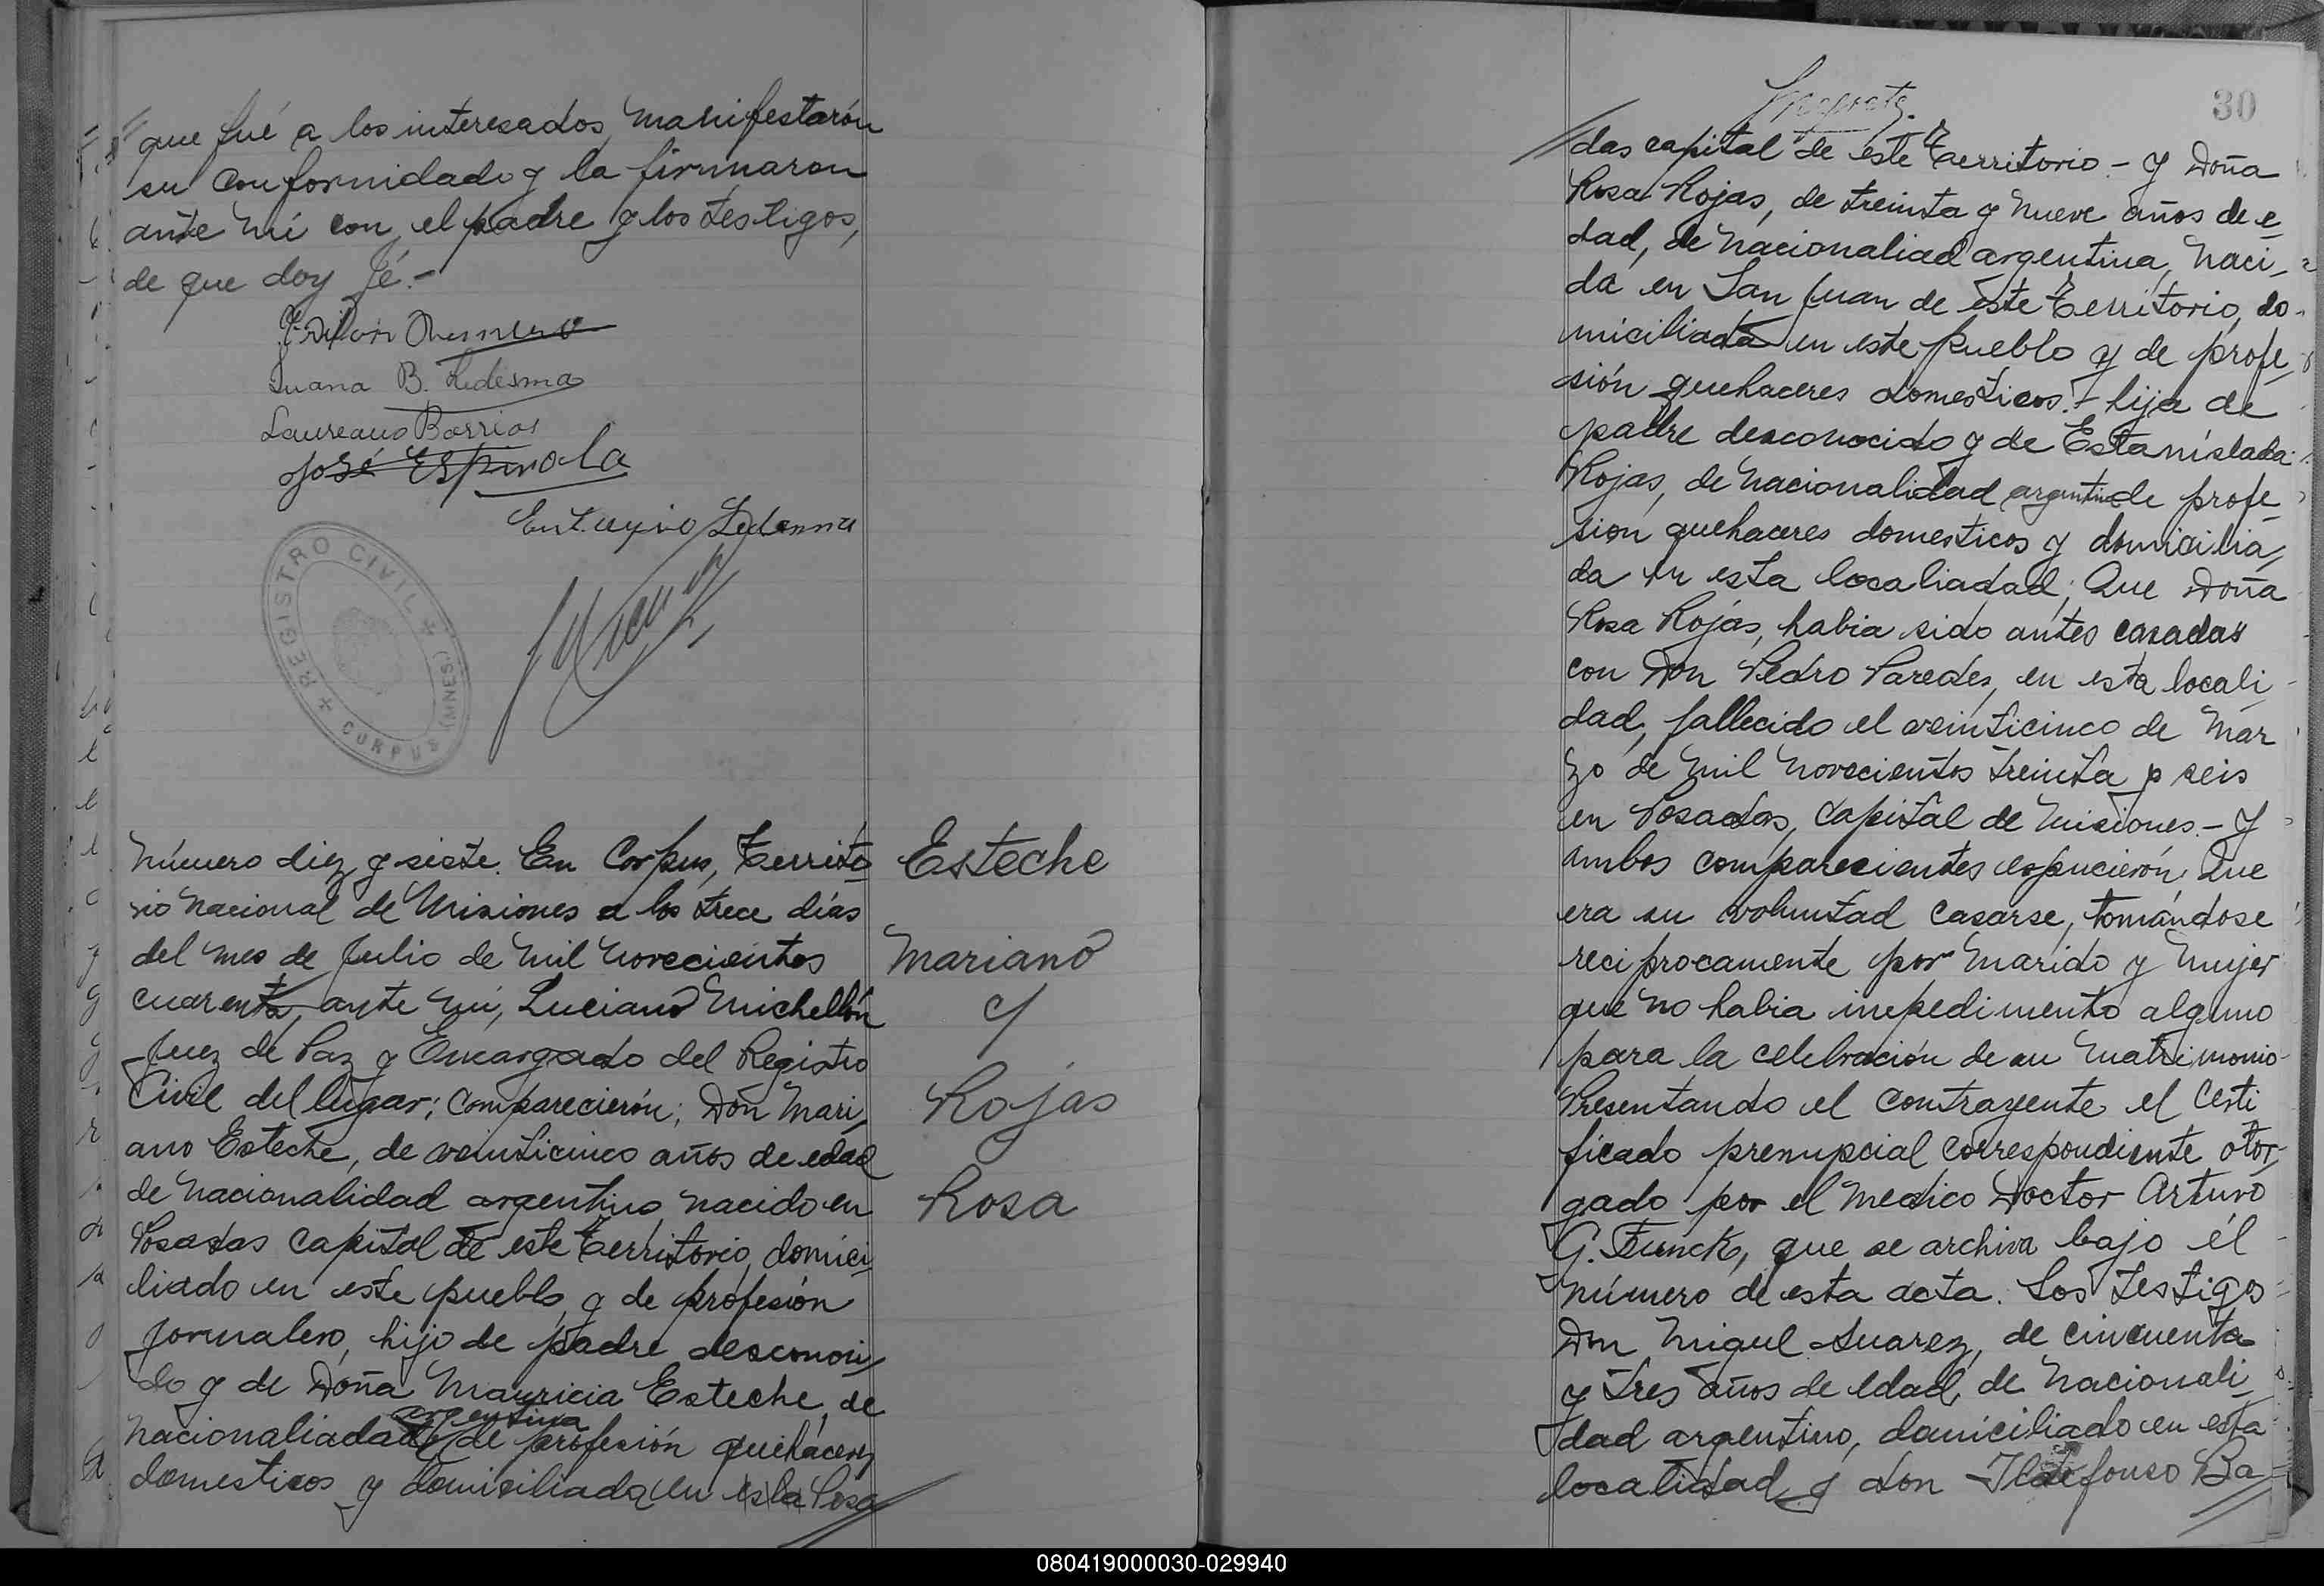 que fué a los interesados, manifestarón
su conformidad y la firmaron
ante mí con el padre y los testigos,
de que doy fé.-
Juana B. Ledesma
Laureano Barrios
José Espinola
Ledesma
REGISTRO CIVIL
CORPUS (MNES)
Número diez y siete. En Corpus, Territo
rio Nacional de Misiones a los trece días
del mes de Julio de mil novecientos
cuarenta, ante mí, Luciano Michellón
Juez de Paz y Encargado del Registro
Civil del lugar; comparecierón; Don Mari
ano Esteche, de veinticinco años de edad
de nacionalidad argentino, nacido en
Posadas capital de este territorio, domici
liado en este pueblo, y de profesión
jornalero, hijo de padre desconoci
do y de Doña Mauricia Esteche, de
argentina
nacionaliadad, de profesión quehaceres
domesticos y domiciliada en esta Posa
Esteche
Mariano
y
Rojas
Rosa
30
das capital de este territorio.- y Doña
Rosa Rojas, de treinta y nueve años de e
dad, de nacionaliad argentina, naci
da en San Juan de este territorio, do
miciliada en este pueblo y de profe
sión quehaceres domesticos.- hija de
padre desconocido y de Estanislada
Rojas, de nacionalidad argentina de profe
sión quehaceres domesticos y domicilia
da en esta localiadad; Que Doña
Rosa Rojas, habia sido antes casada
con Don Pedro Paredes, en esta locali
dad, fallecido el veinticinco de Mar
zo de mil novecientos treinta y seis
en Posadas, capital de Misiones.- y
ambos comparecientes expucierón: Que
era su voluntad casarse, tomándose
reciprocamente por marido y mujer
que no habia inepedimento alguno
para la celebración de su matrimonio
Presentando el contrayente el Certi
ficado prenupcial correspondiente otor
gado por el medico Doctor Arturo
G. Funck, que se archiva bajo él
número de esta acta. Los testigo
Don Miguel Suarez, de cincuenta
y tres años de edad, de nacionali
dad argentino, domiciliado en esta
localidad y don Ildefonso Ba
080419000030-029940